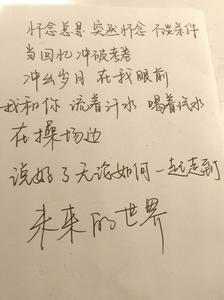 怀念总是 突然怀念 不谈条件
当回忆冲破考卷
冲出岁月 在我眼前
我和你 流着汗水 喝着汽水
在操场边
说好了无论如何一起走到
未来的世界